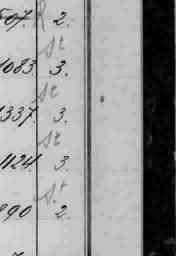 507. 2.
St
1083 3.
St
1337. 3.
St
1124. 3.
St
890 2.